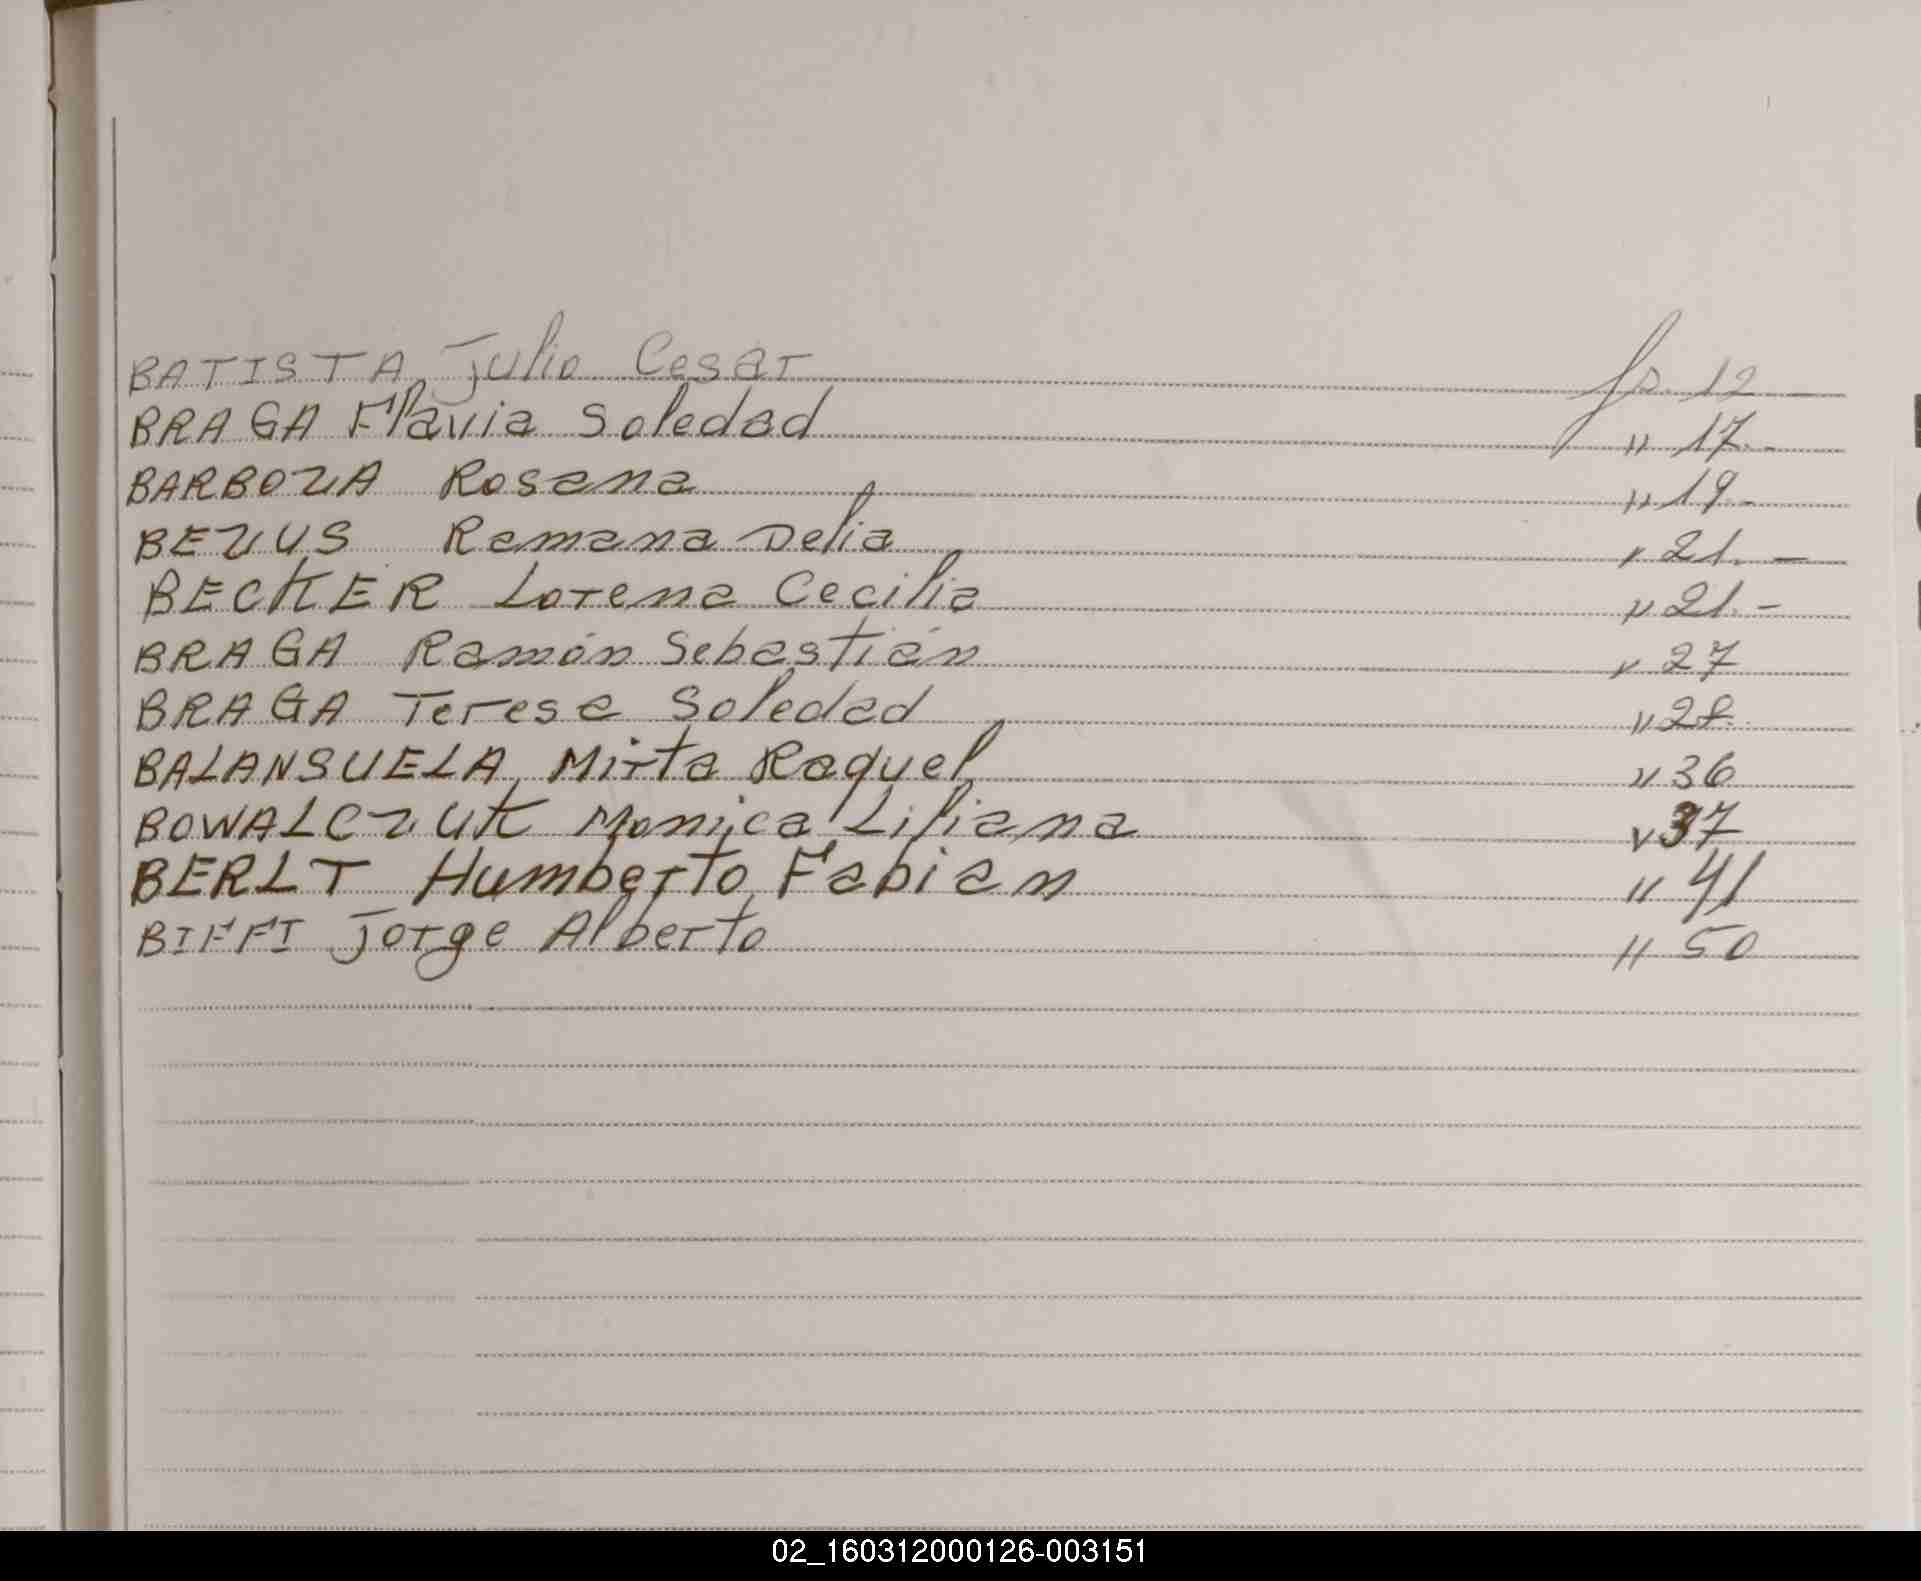 BATISTA Julio Cesar fs. 12 -
BRAGA Flavia Soledad " 17. -
BARBOZA Rosana " 19. -
BEZUS Ramana Delia " 21. -
BECKER Lorena Cecilia " 21. -
BRAGA Ramón Sebastián " 27
BRAGA Teresa Soledad " 28.
BALANSUELA Mirta Raquel " 36
BOWALCZUK Monica Liliana " 37
BERLT Humberto Fabian " 41
BIFFI Jorge Alberto " 50
02_160312000126-003151